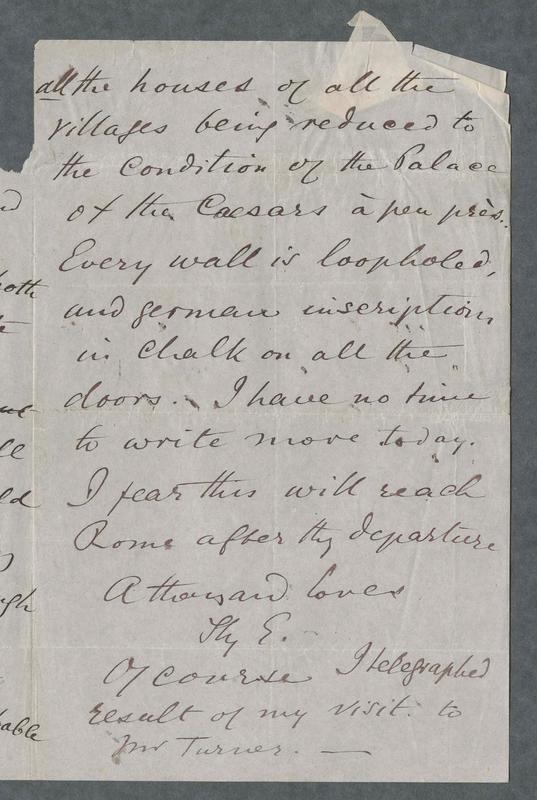 all the houses of all the
villages being reduced to
the condition of the Palace
of the Caesars à peu près.
Every wall is loopholed,
and german inscriptions
in chalk on all the
doors. I have no time
to write more today.
I fear this will reach
Rome after thy departure
A thousand loves
Thy E.
Of course I telegraphed
result of my visit to
Mr Turner. —
oth
ld
ugh
able